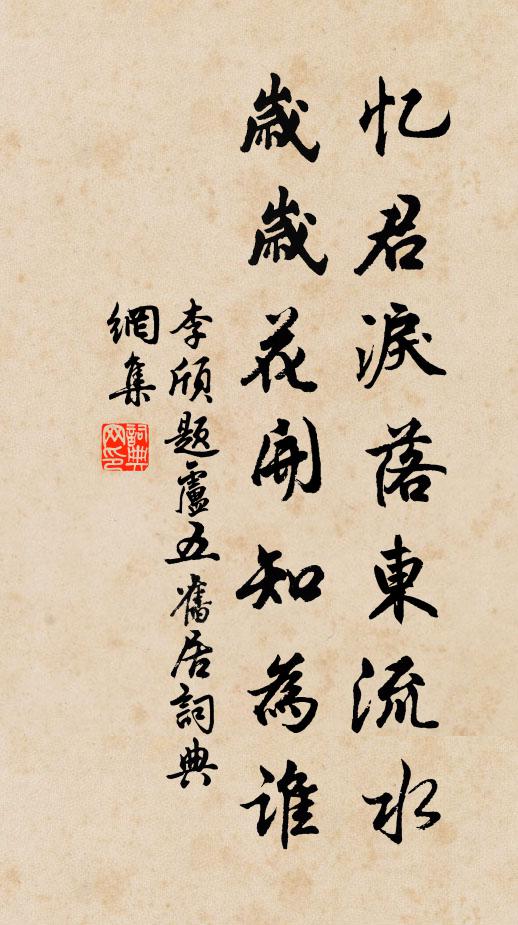 忆君淚落東流水
歲歲花開知為誰
李頎題盧五舊居詞典
網集
詞典
网印